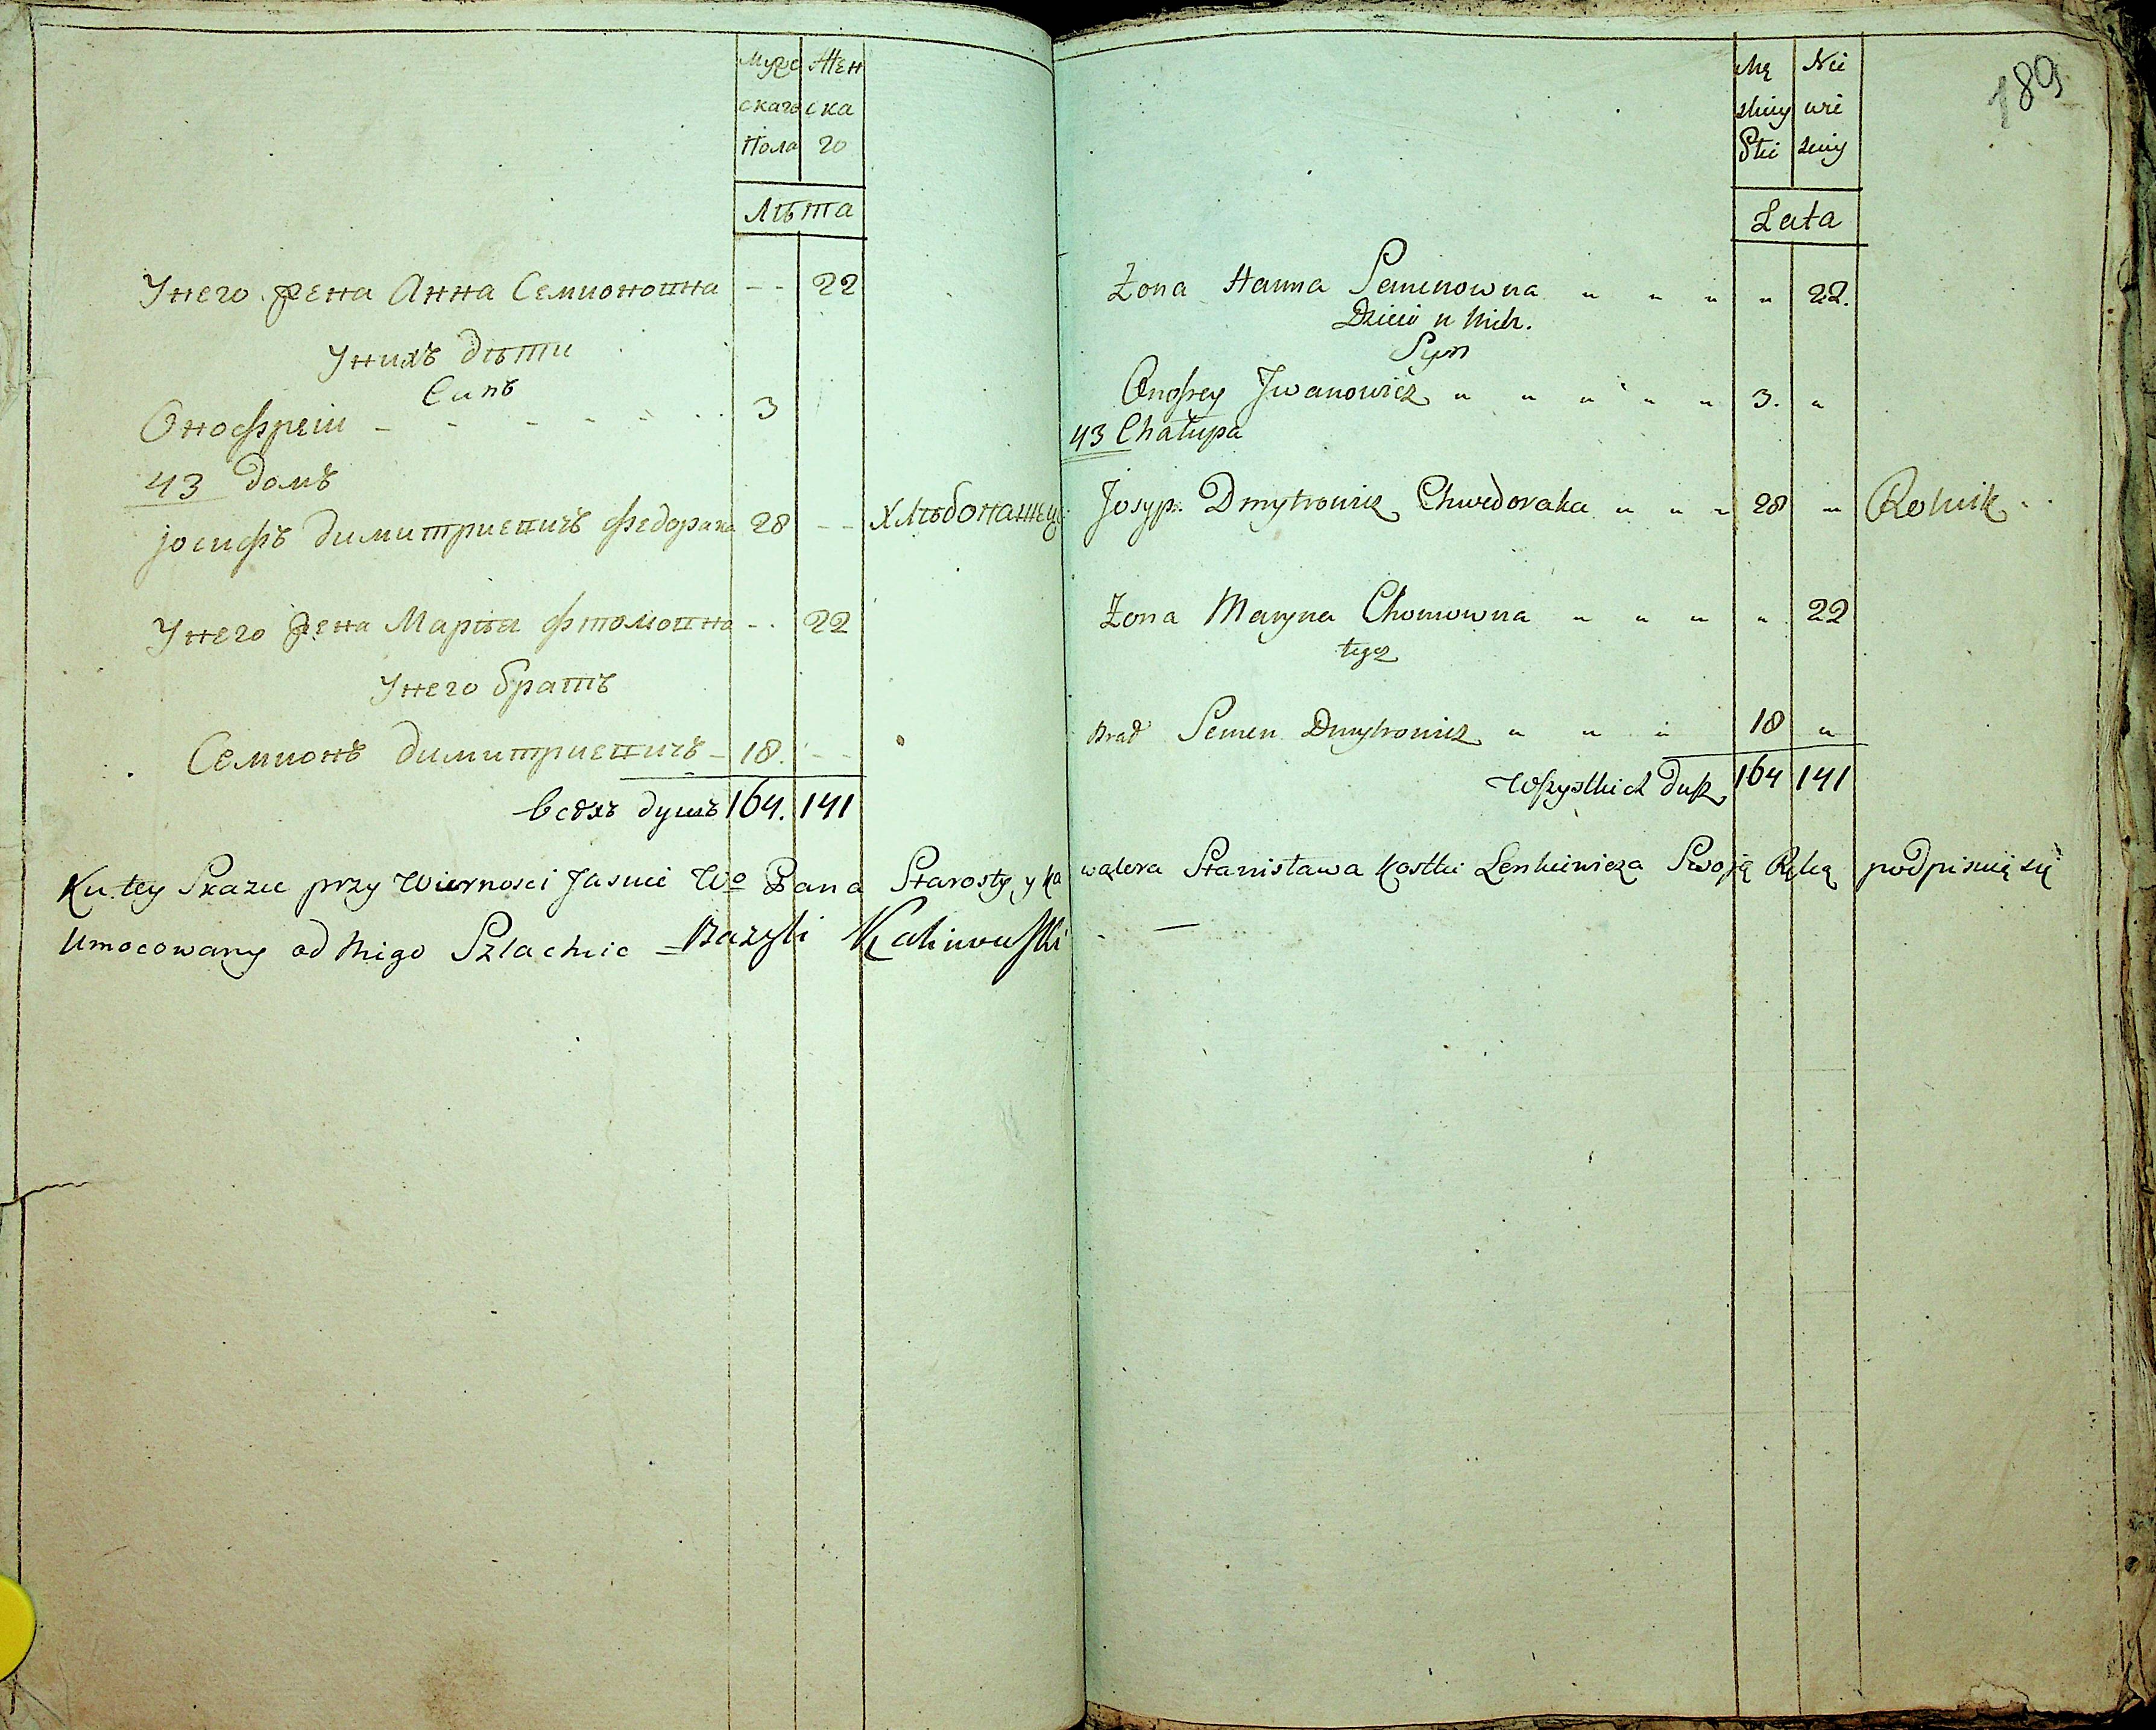 Мужс Жен
скаго ска
пола го
Лѣта
Унего жена Анна Семионовна - - 22
Унихъ дѣти
Синъ
Онофрей - - - - - 3
43 домъ
Іосифъ Димитриевичъ Федорака 28 - - хлѣбопашец
Унего жена Марья Фтомовна - - 22
Унего братъ
Семионъ Димитриевичъ - 18. - -
всѣхъ душъ 164. 141
Mę Nie
skiey wie
Płci sciey
Lata
189
Żona Hanna Semenowna " " " " 22.
Dzieci u nich.
Syn
Onofrey Jwanowicz " " " " " 3. "
43 Chałupa
Josyp Dmytrowicz Chwedoraka " " " 28 " Rolnik
Żona Maryna Chomowna " " " " 22
tegoż
Brad Semen Dmytrowicz " " " 18 "
Wszystkich dusz 164 141
Ku tey Skazce przy Wiernosci Jasnie Wo Pana Starosty y Kawalera Stanisława Kostki Lenkiewicza Swoją Ręką podpisuię się
Umocowany od Niego Szlachcic Bazyli Kalinowski